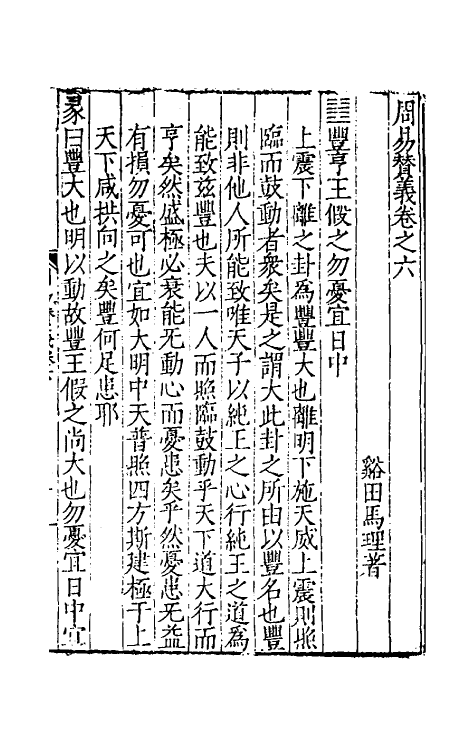 周易賛義卷之六
谿田馬理著
䷶豐亨王假之勿憂宜日中
上震下離之卦為豐豐大也離明下施天威上震則照
臨而鼓動者衆矣是之謂大此卦之所由以豐名也豐
則非他人所能致唯天子以純王之心行純王之道為
能致兹豐也夫以一人而照臨鼓動乎天下道大行而
亨矣然盛極必衰能无動心而憂患矣乎然憂患无益
有損勿憂可也宜如大明中天普照四方斯建極于上
天下咸拱向之矣豐何足患耶
彖曰豐大也明以動故豐王假之尚大也勿憂宜日中宜